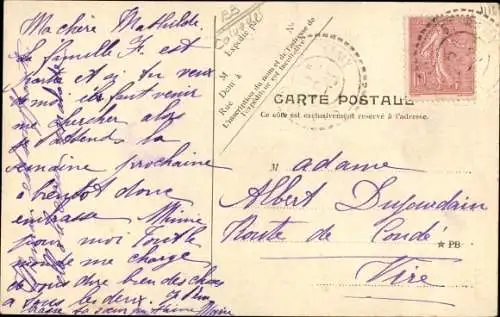 Ma chère Mathilde.
La famille F. est
partie et si tu veux
de moi, ils faut venir
me chercher alors
je t'attends la
semaine prochaine
à bientôt donc
embrasse Mimie
pour moi tout le
monde me charge
de vous dire bien des choses
à vous les deux.
ta sœur qui t'aime Marie
No
Expédié par
M
Dom à
Rue
L'inscription du nom et de l'adresse de
l'Expéditeur est facultative
CARTE POSTALE
Ce côté est exclusivement réservé à l'adresse.
Madame
Albert Dujourdain
Route de Condé
★ PB
Vire